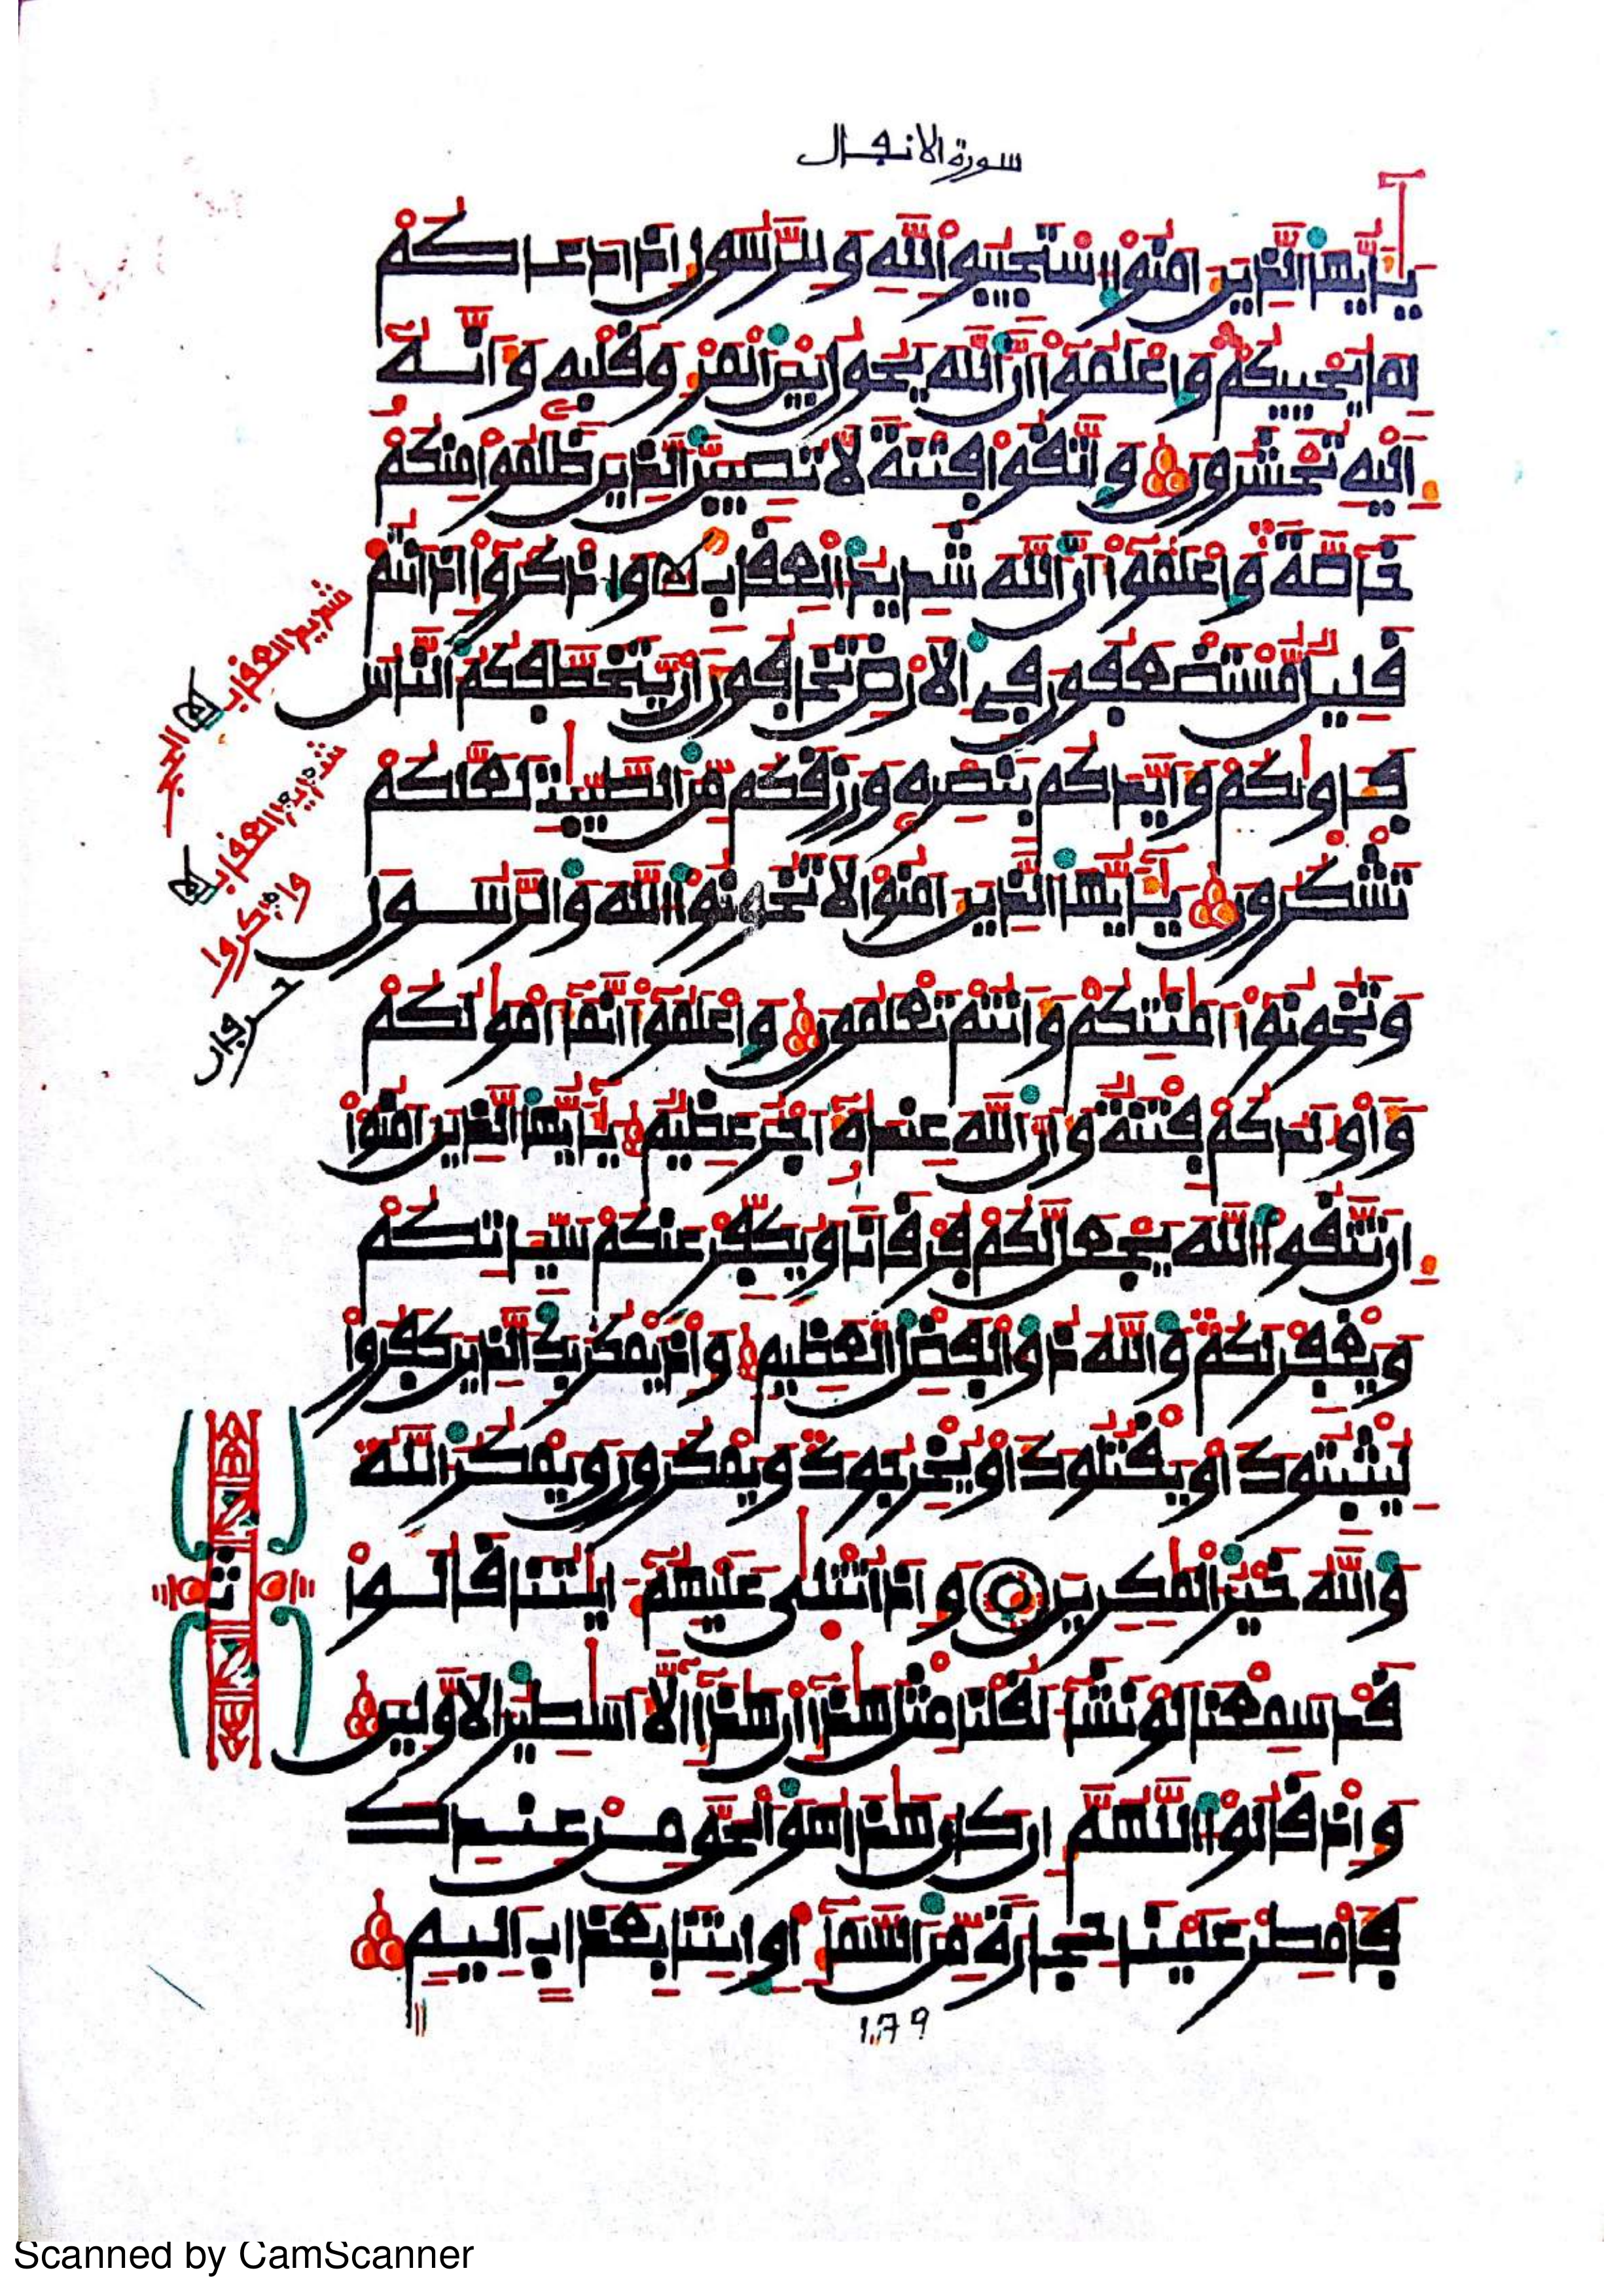 سورة الانفال
يٰأيها الذين امنوا استجيبوا لله وللرسول اذا دعاكم
لما يحييكم واعلموا أن الله يحول بين المرء وقلبه وأنه
إليه تحشرون واتقوا فتنة لا تصيبن الذين ظلموا منكم
خاصة واعلموا أن الله شديد العقاب واذكروا إذ انتم
قليل مستضعفون في الارض تخافون أن يتخطفكم الناس
فـاوٰىكم وأيدكم بنصره ورزقكم من الطيبٰت لعلكم
تشكرون يٰأيها الذين امنوا لا تخونوا الله والرسول
وتخونوا أمٰنٰتكم وأنتم تعلمون واعلموا أنما أموٰلكم
وأولٰدكم فتنة وأن الله عنده أجر عظيم يٰأيها الذين امنوا
إن تتقوا الله يجعل لكم فرقانا ويكفر عنكم سيـاتكم
ويغفر لكم والله ذو الفضل العظيم وإذ يمكر بك الذين كفروا
ليثبتوك أو يقتلوك أو يخرجوك ويمكرون ويمكر الله
والله خير المٰكرين وإذا تتلى عليهم ءايٰتنا قالوا
قد سمعنا لو نشاء لقلنا مثل هٰذا إن هٰذا إلا أسٰطير الاولين
وإذ قالوا اللهم إن كان هٰذا هو الحق من عندك
فأمطر علينا حجارة من السماء أو ائتنا بعذاب أليم
شديد العقاب
شديد العقاب
واذكروا
ث
179
Scanned by CamScanner